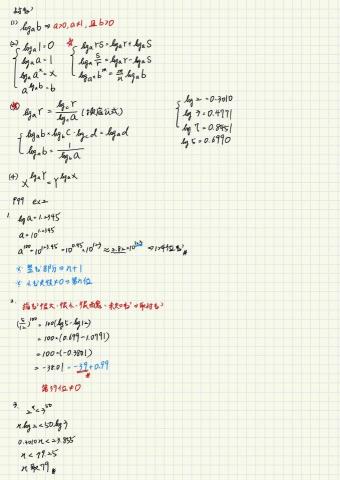 (1) log_a b ⇒ a>0, a≠1, 且 b>0
(2) log_a 1=0
log_a a=1
log_a a^x=x
a^(log_a b)=b
log_a rs=log_a r+log_a s
log_a r/s=log_a r-log_a s
log_(a^n) b^m=m/n log_a b
log_a r=log_c r/log_c a (換底公式)
log_a b·log_b c·log_c d=log_a d
log_a b=1/log_b a
log 2=0.3010
log 3=0.4771
log 7=0.8451
log 5=0.6990
(4) x^(log_a Y)=Y^(log_a x)
P99 ex2
1. log a=1.2345
a=10^1.2345
a^100=10^123.45=10^0.45×10^123≒2.82×10^123⇒124位數
※ 整數部分=n+1
2.
(5/12)^100=100(log5-log12)
=100×(0.699-1.0791)
=100×(-0.3801)
=-38.01=-39+0.99
第39位≠0
3. 2^x<3^50
x log 2<50 log 3
0.3010x<23.855
x<79.25
x取79